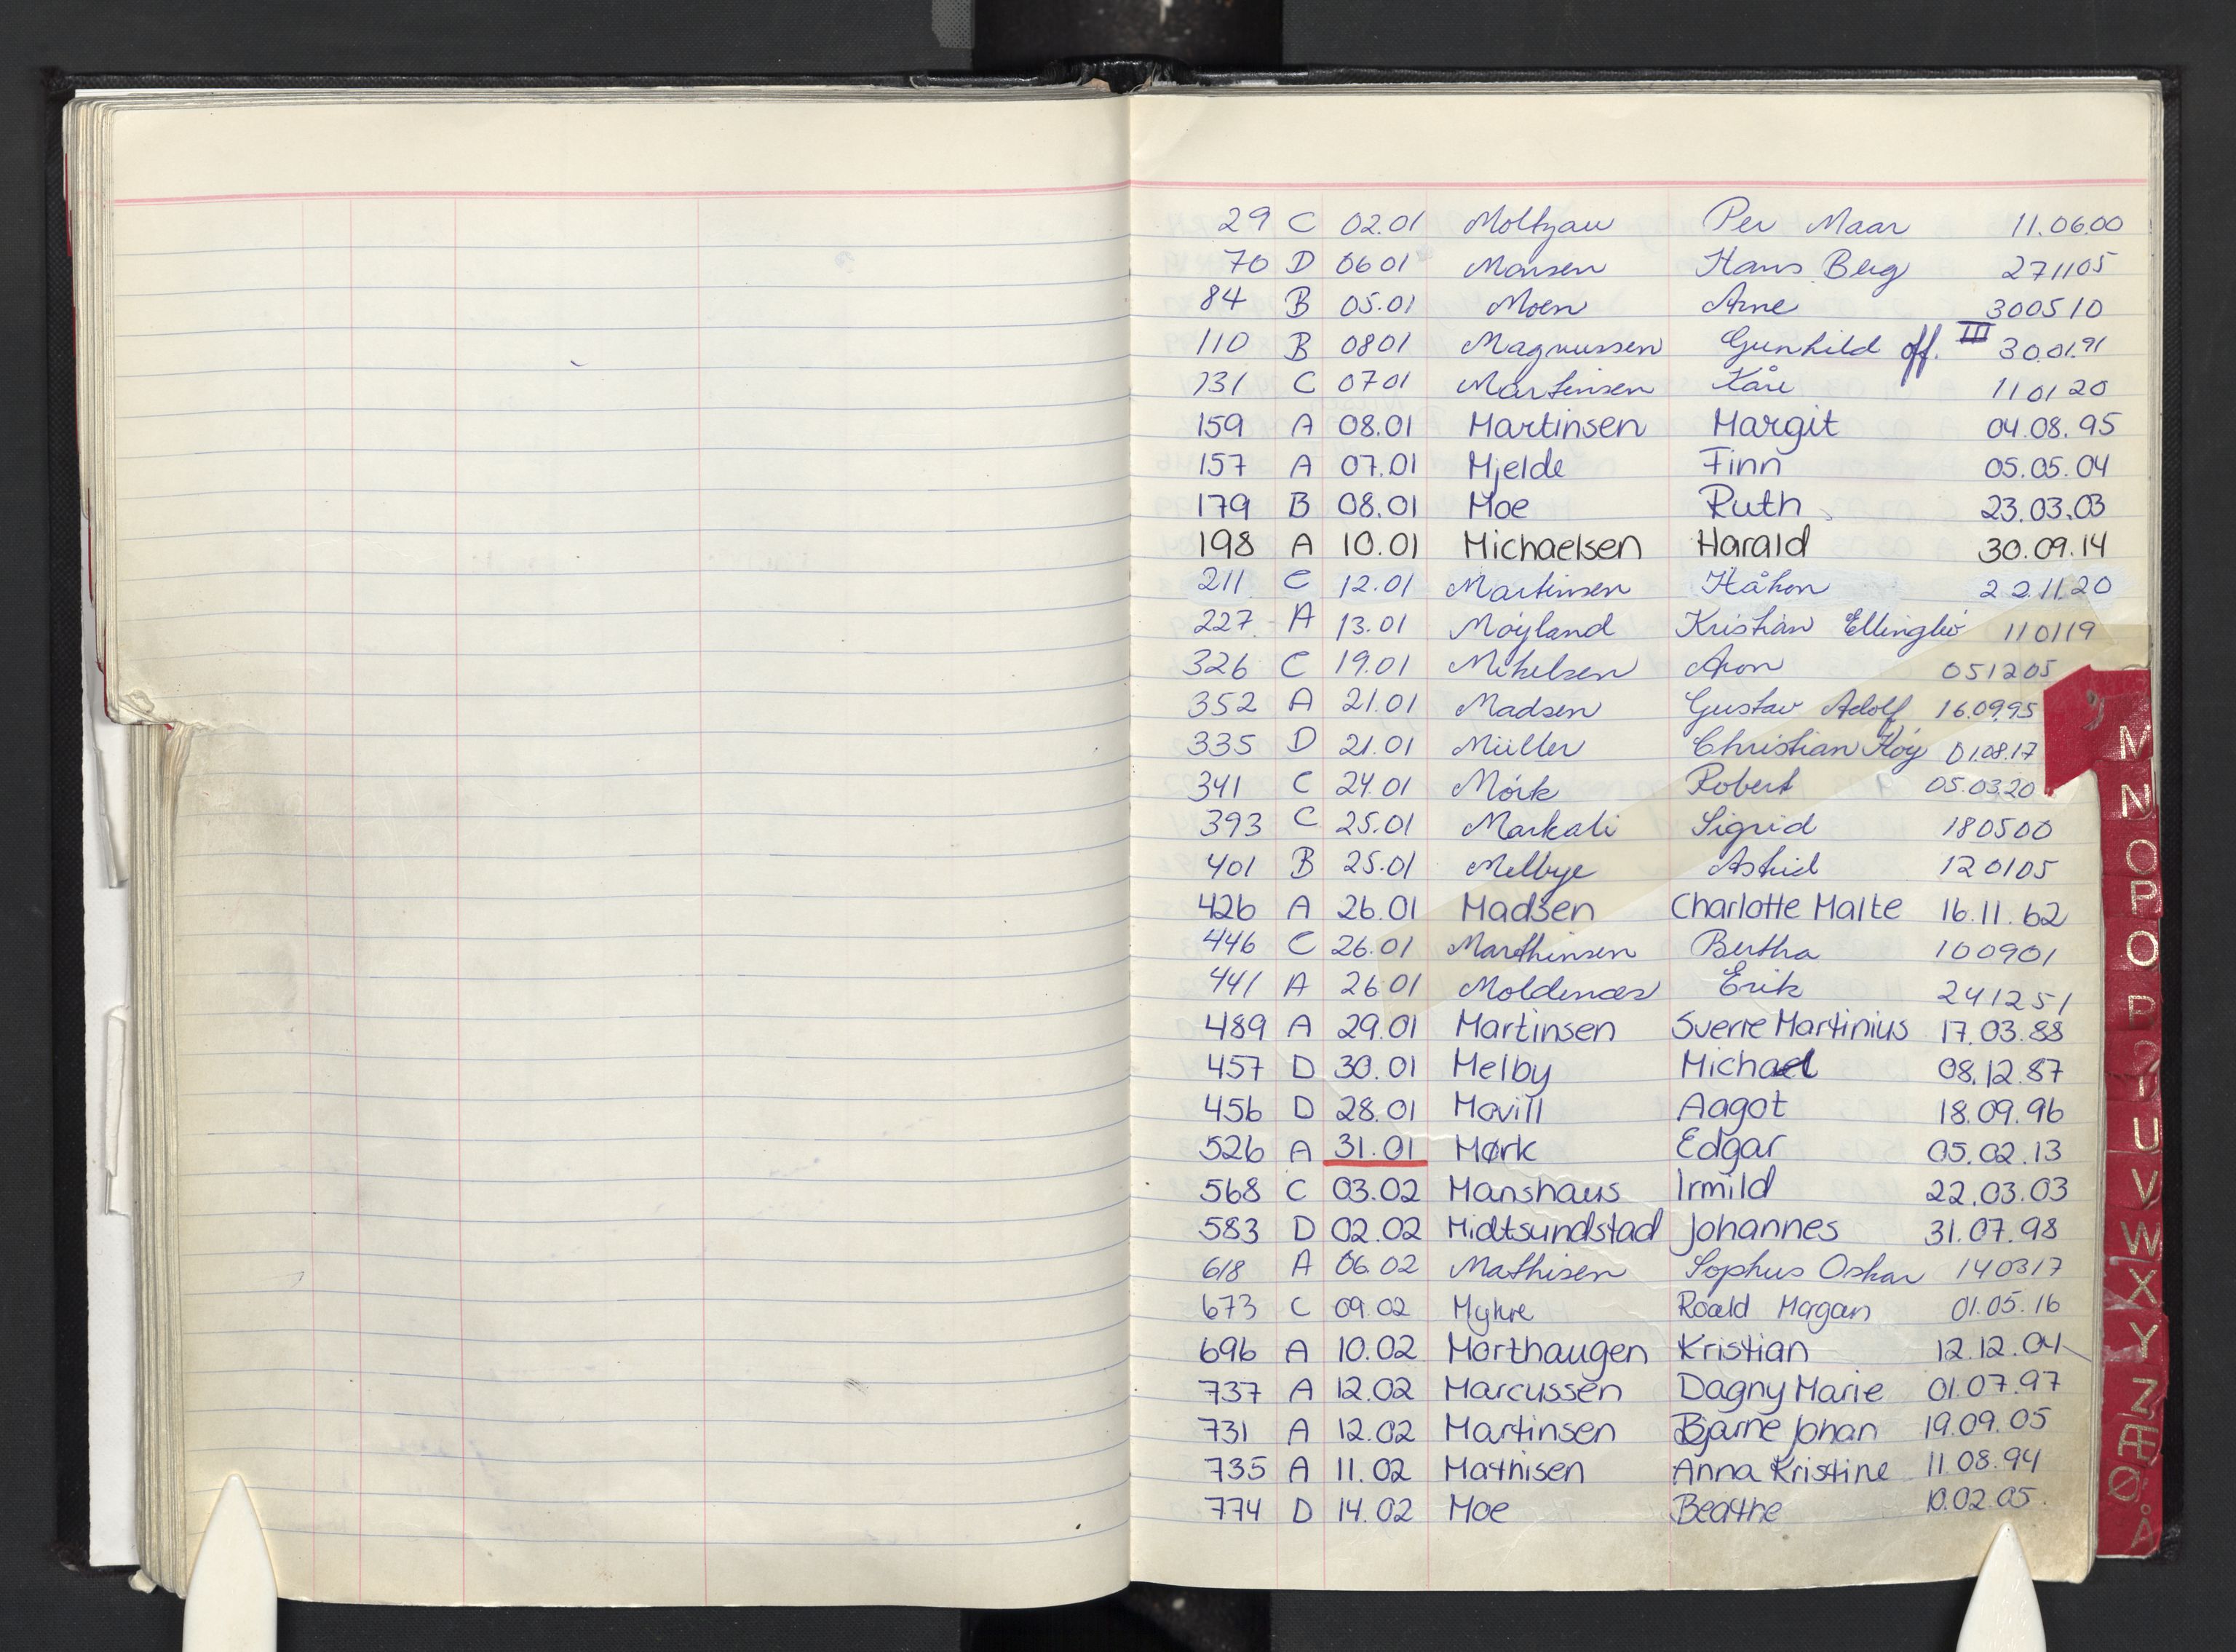 29 C 02.01 Moltzau Per Maar 11.06.00
70 D 0601 Monsen Hans Berg 271105
84 B 05.01 Moen Arne 300510
110 B 0801 Magnussen Gunhild off. III 30.01.91
131 C 0701 Martinsen Kåre 110120
159 A 08.01 Martinsen Margit 04.08.95
157 A 07.01 Mjelde Finn 05.05.04
179 B 08.01 Moe Ruth 23.03.03
198 A 10.01 Michaelsen Harald 30.09.14
211 C 12.01 Martinsen Håkon 22.11.20
227 A 13.01 Møyland Kristian 110119
326 C 19.01 Mikelsen Aron 051205
352 A 21.01 Madsen Gustav Adolf 16.09.95
335 D 21.01 Müller Christian Høy 01.08.17
341 C 24.01 Mørk Robert 05.03.20
393 C 25.01 Markali Sigrid 180500
401 B 25.01 Melbye Astrid 120105
426 A 26.01 Madsen Charlotte Malte 16.11.62
446 C 26.01 Marthinsen Bertha 100901
441 A 2601 Moldenæs Erik 241251
489 A 29.01 Martinsen Sverre Martinius 17.03.88
457 D 30.01 Melby Michael 08.12.87
456 D 28.01 Movill Aagot 18.09.96
526 A 31.01 Mørk Edgar 05.02.13
568 C 03.02 Manshaus Irmild 22.03.03
583 D 02.02 Midtsundstad Johannes 31.07.98
618 A 06.02 Mathisen Sophus Oskar 140317
673 C 09.02 Mykre Roald Magan 01.05.16
696 A 10.02 Morthaugen Kristian 12.12.04
737 A 12.02 Marcussen Dagny Marie 01.07.97
731 A 12.02 Martinsen Bjarne Johan 19.09.05
735 A 11.02 Mathisen Anna Kristine 11.08.94
774 D 14.02 Moe Beathe 10.02.05.
M
N
O
P
O
P
U
V
W
X
Y
Z
Æ
Ø
Å